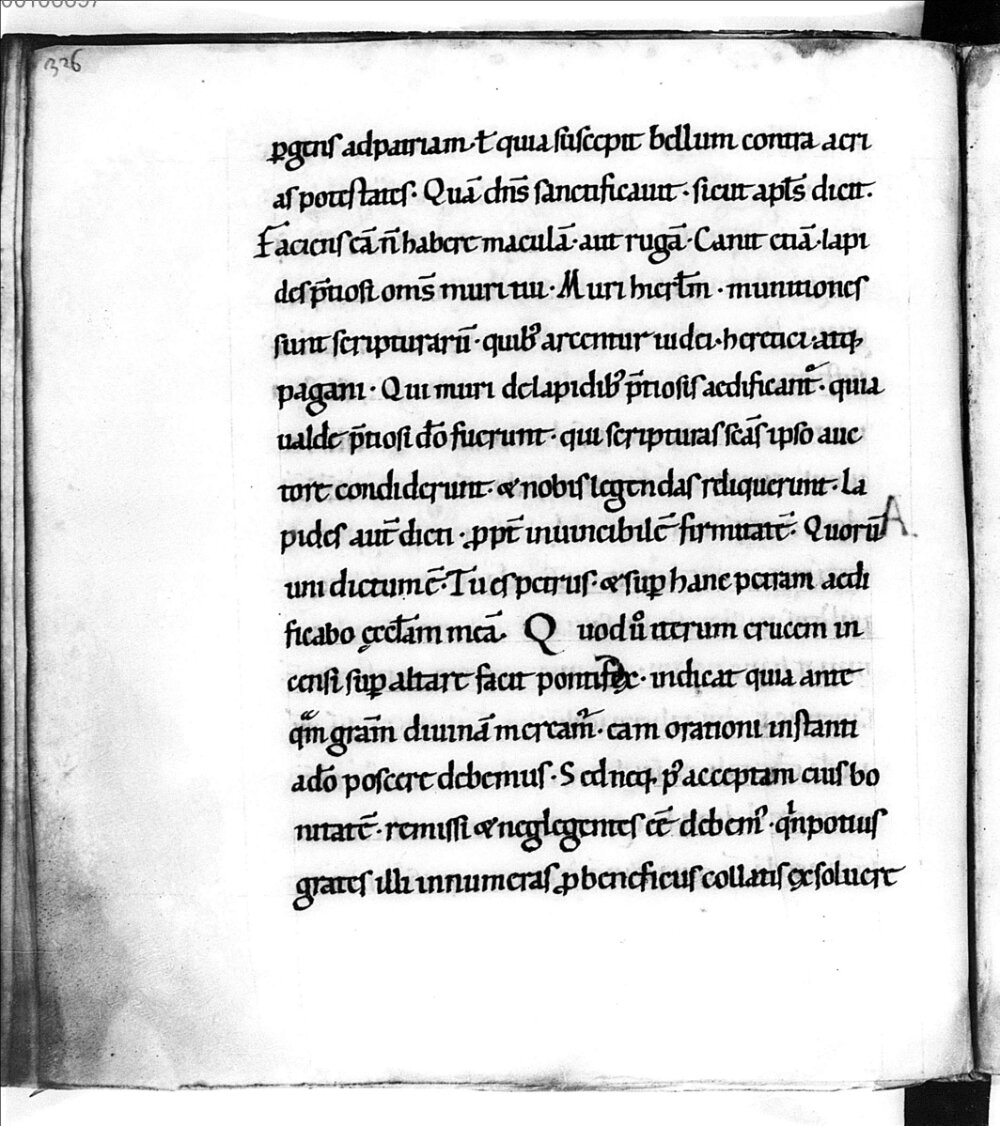 326
ꝑgens ad patriam· ł quia suscepit bellum contra aeri
as potestates· Quā dn̄s sanctificauit· sicut apl̄s dicit·
Faciens eā n̄ habere maculā· aut rugā· Canit etiā· lapi
des p̄tiosi om̄s muri tui· Muri hierl̄m· munitiones
sunt scripturarū· quibꝰ arcentur iudei· heretici· atq;
pagani· Qui muri de lapidibꝰ p̄tiosis aedificant᷑· quia
ualde p̄tiosi dō fuerunt· qui scripturas scās ipso auc
tore condiderunt· & nobis legendas reliquerunt· La
pides aut̄ dicti· ꝓpt̄ inuincibilē firmitatē· Quorū A
uni dictum ē· Tu es petrus· & suꝑ hanc petram aedi
ficabo ęccl̄am meā· Quod uͦ iterum crucem in
censi suꝑ altare facit pontifex· indicat quia ante
qͣm gr̄am diuinā meream᷑· eam orationi instanti
a dō poscere debemus· Sed neq; pꝰ acceptam eius bo
nitatē· remissi & neglegentes eē debemꝰ· qͥn potius
grates illi innumeras ꝓ beneficiis collatis exsoluere